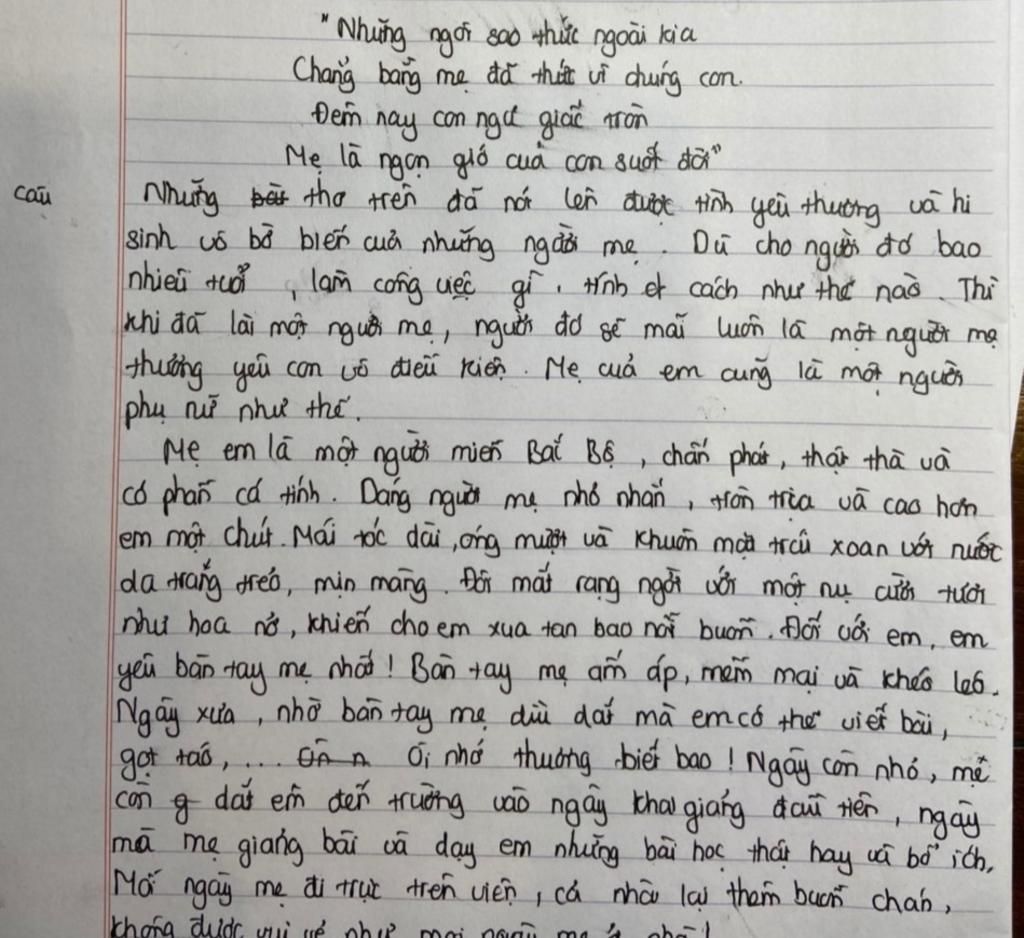 "Những ngôi sao thức ngoài kia
Chẳng bằng mẹ đã thức vì chúng con.
Đêm nay con ngủ giấc tròn
Mẹ là ngọn gió của con suốt đời"
câu Những bài thơ trên đã nói lên được tình yêu thương và hi
sinh vô bờ biến của những người mẹ. Dù cho người đó bao
nhiêu tuổi, làm công việc gì, tính et cách như thế nào. Thì
khi đã lài một người mẹ, người đó sẽ mãi luôn là một người mẹ
thương yêu con vô điều kiện. Mẹ của em cũng là một người
phụ nữ như thế.
Mẹ em là một người miền Bắc Bộ, chân phát, thật thà và
có phần cá tính. Dáng người mẹ nhỏ nhắn, tròn trịa và cao hơn
em một chút. Mái tóc dài, óng mượt và khuôn mặt trái xoan với nước
da trắng trẻo, mịn màng. Đôi mắt rạng ngời với một nụ cười tươi
như hoa nở, khiến cho em xua tan bao nỗi buồn. Đối với em, em
yêu bàn tay mẹ nhất! Bàn tay mẹ ấm áp, mềm mại và khéo léo.
Ngày xưa, nhờ bàn tay mẹ dìu dắt mà em có thể viết bài,
gọt táo, ... Ôi nhớ thương biết bao! Ngày còn nhỏ, mẹ
còn g dắt em đến trường vào ngày khai giảng đầu tiên, ngày
mà mẹ giảng bài và dạy em những bài học thật hay và bổ ích.
Mỗi ngày mẹ đi trực trên viện, cả nhà lại thêm buồn chán,
không được vui vẻ như mọi ngày mẹ ở nhà!